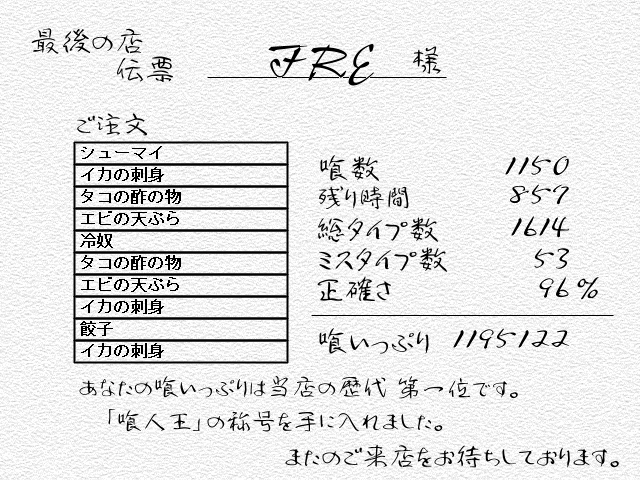 最後の店
伝票 FRE 様
ご注文
シューマイ
イカの刺身
タコの酢の物
エビの天ぷら
冷奴
タコの酢の物
エビの天ぷら
イカの刺身
餃子
イカの刺身
喰数 1150
残り時間 857
総タイプ数 1614
ミスタイプ数 53
正確さ 96%
喰いっぷり 1195122
あなたの喰いっぷりは当店の歴代 第一位です。
「喰人王」の称号を手に入れました。
またのご来店をお待ちしております。